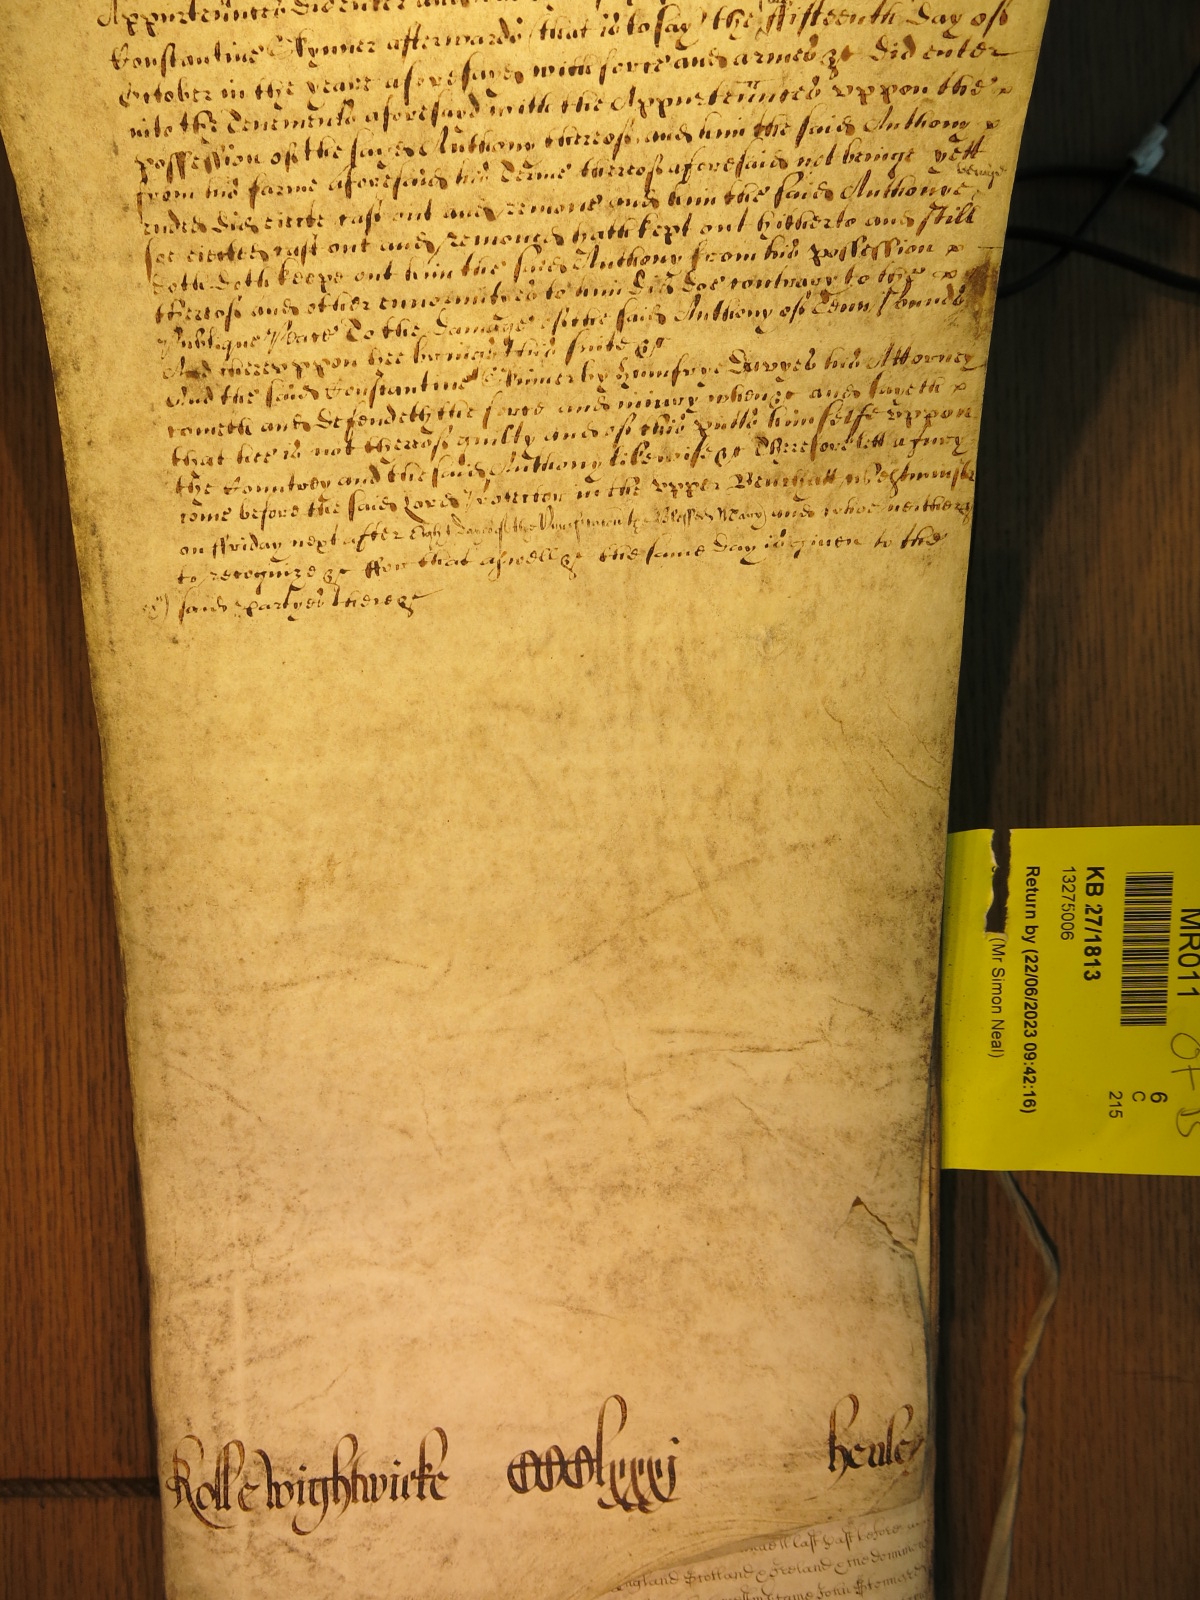 Appurtennces did enter and
Constantine Skynner afterwards (that is to say) the ffifteenth day of
October in the yeare aforesayd with force and armes &c did enter
into the Tenements aforesayd with the Appurtennces vppon the
possession of the sayd Anthony thereof and him the said Anthony
from his farme aforesaid his Terme thereof aforesaid not beinge yett
ended did eiecte cast out and remoue and him the said Anthonye beinge
soe eiected cast out and remoued hath kept out hitherto and still
doth keepe out him the said Anthony from his possession
thereof and other enormityes to him did doe contrary to the
Publique Peace To the damage of the said Anthony of Tenn Pounds
And thereuppon hee brings this suite &c
And the said Constantine Skinner by Humfrye Davyes his Attorney
cometh and defendeth the force and iniury when &c and sayeth
that hee is not thereof guilty and of this putts himselfe vppon
the Countrey and the said Anthony likewise &c Therefore lett a Jury
come before the said Lord Protector in the vpper Bench att Westminster
on ffriday next after eight dayes of the Purificacon of the Blessed Mary and whoe neither &c
to recognize &c ffor that aswell &c the same day is given to the
said partyes there &c
Rolle Wightwicke CCClxxxj Henley
last past before
England Scotland & Ireland & the dominions
MR011
KB 27/1813
13275006
Return by (22/06/2023 09:42:16)
(Mr Simon Neal)
6
C
215